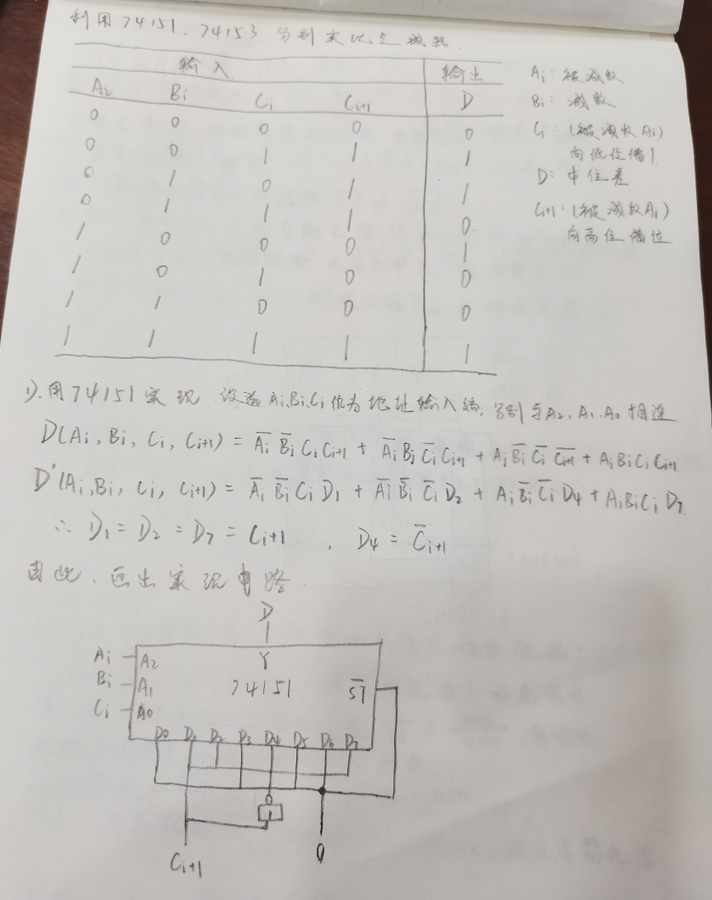 利用74151、74153分别实现全减器
输入 输出
Ai Bi Ci Ci+1 D
0 0 0 0 0
0 0 1 1 1
0 1 0 1 1
0 1 1 1 0
1 0 0 0 1
1 0 1 0 0
1 1 0 0 0
1 1 1 1 1
Ai: 被减数
Bi: 减数
Ci: (被减数Ai)
向低位借1
D: 本位差
Ci+1: (被减数Ai)
向高位借位
1). 用74151实现 设 Ai、Bi、Ci作为地址输入端, 分别与A2、A1、A0相连
D(Ai, Bi, Ci, Ci+1) = A̅i B̅i Ci Ci+1 + A̅i Bi C̅i Ci+1 + Ai B̅i C̅i C̅i+1 + Ai Bi Ci Ci+1
D'(Ai, Bi, Ci, Ci+1) = A̅i B̅i Ci D1 + A̅i B̅i C̅i D2 + Ai B̅i C̅i D4 + Ai Bi Ci D7
∴ D1 = D2 = D7 = Ci+1 , D4 = C̅i+1
由此, 画出实现电路
D
Ai A2 Y
Bi A1 74151 S̅T̅
Ci A0
D0 D1 D2 D3 D4 D5 D6 D7
1
Ci+1 0